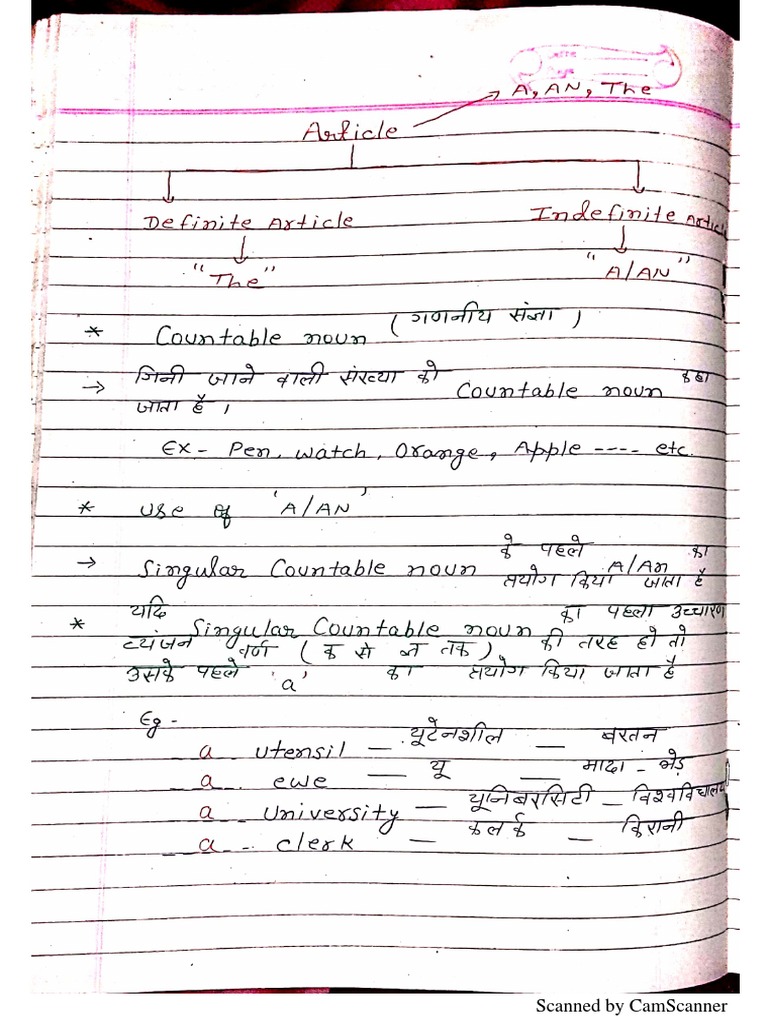 A, AN, The
Article
Definite Article Indefinite Article
"The" "A/AN"
* Countable noun (गणनीय संज्ञा)
→ गिनी जाने वाली संख्या को Countable noun कहा
जाता है।
Ex - Pen, watch, Orange, Apple ---- etc.
* use of 'A/AN'
→ Singular Countable noun के पहले A/An का
प्रयोग किया जाता है
* यदि Singular Countable noun का पहला उच्चारण
व्यंजन वर्ण (क से ज्ञ तक) की तरह हो तो
उसके पहले 'a' का प्रयोग किया जाता है
Eg -
a utensil — यूटेनशील — बरतन
a ewe — यू — मादा - भेड़
a university — यूनिबरसिटी — विश्वविद्यालय
a clerk — कलर्क — किरानी
Scanned by CamScanner